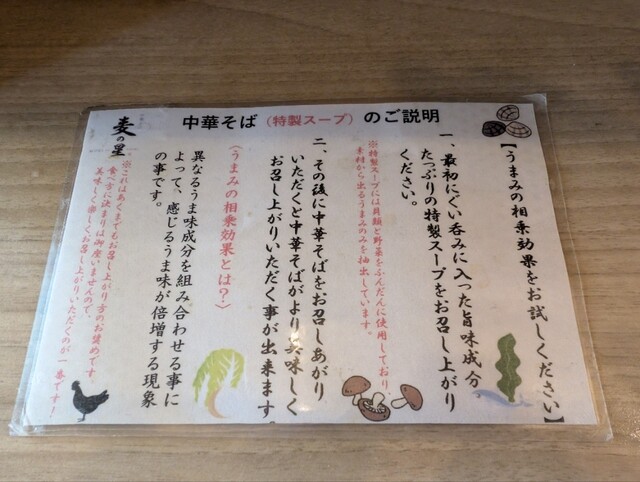 中華そば(特製スープ)のご説明
【うまみの相乗効果をお試しください】
一、最初にぐい呑みに入った旨味成分
たっぷりの特製スープをお召し上がり
ください。
※特製スープには貝類と野菜をふんだんに使用しており
素材から出るうまみのみを抽出しています。
二、その後に中華そばをお召しあがり
いただくと中華そばがより美味しく
お召し上がりいただく事が出来ます
(うまみの相乗効果とは?)
異なるうま味成分を組み合わせる事に
よって、感じるうま味が倍増する現象
の事です。
※これはあくまでもお召し上がり方のお奨めです。
食べ方に決まりは御座いませんので、
美味しく楽しくお召し上がりいただくのが一番です!
麦の星